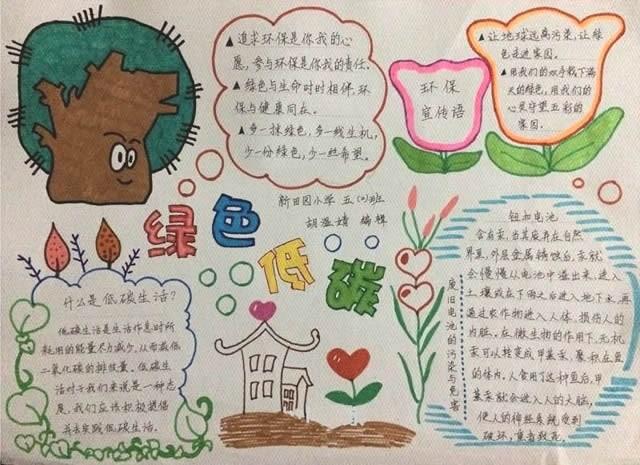 ▲追求环保是你我的心
愿，参与环保是你我的责任。
▲绿色与生命时时相伴，环
保与健康同在。
▲多一抹绿色，多一线生机，
少一份绿色，少一丝希望。
环保
宣传语
▲让地球远离污染，让绿
色走进家园。
▲用我们的双手载下满
天的绿色，用我们的
心灵守望五彩的
家园。
新田园小学 五（2）班
编辑
绿色
低碳
什么是低碳生活？
低碳生活是生活作息时所
耗用的能量尽力减少，从而减低
二氧化碳的排放量。低碳生
活对于我们来说是一种态
度，我们应该积极提倡
并去实践低碳生活。
废旧电池的污染与危害
钮扣电池
含有汞，当其废弃在自然
界里，外层金属锈蚀后，汞就
会慢慢从电池中溢出来，进入
土壤或在下雨之后进入地下水，再
通过农作物进入人体，损伤人的
内脏。在微生物的作用下，无机
汞可以转变成甲基汞，聚积在鱼
的体内。人食用了这种鱼后，甲
基汞就会进入人的大脑，
使人的神经系统受到
破坏，重者致死。